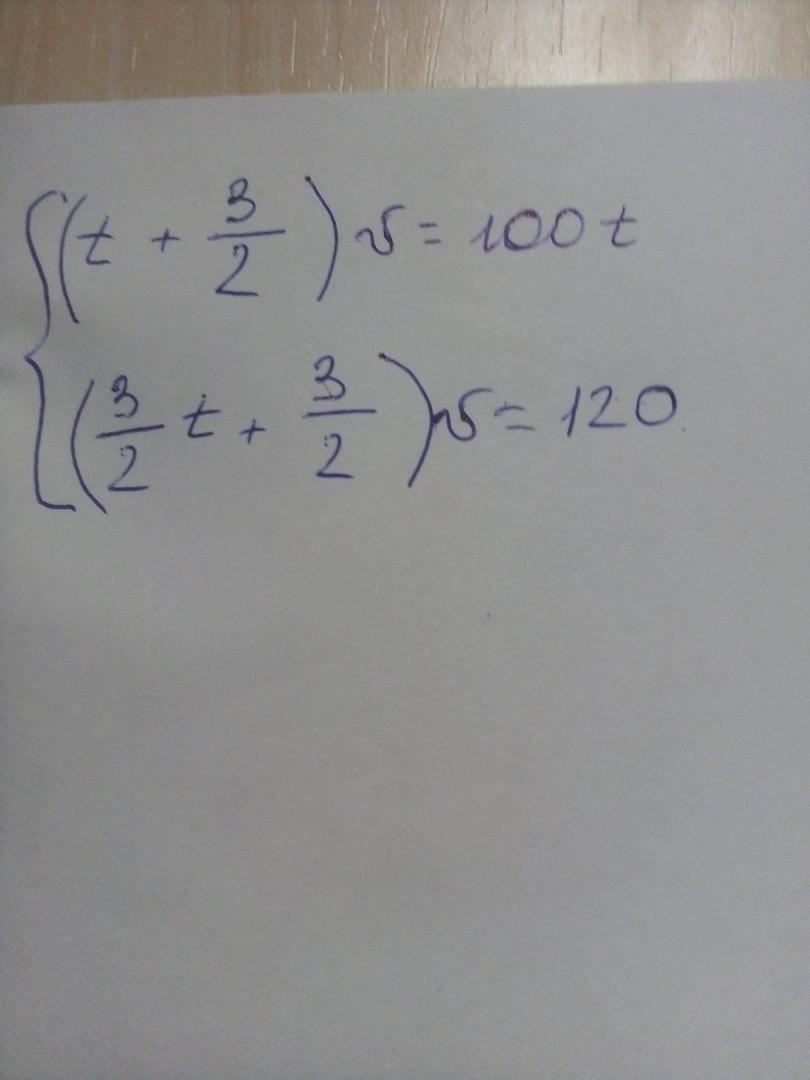 {(t + 3/2) v = 100 t
(3/2 t + 3/2) v = 120